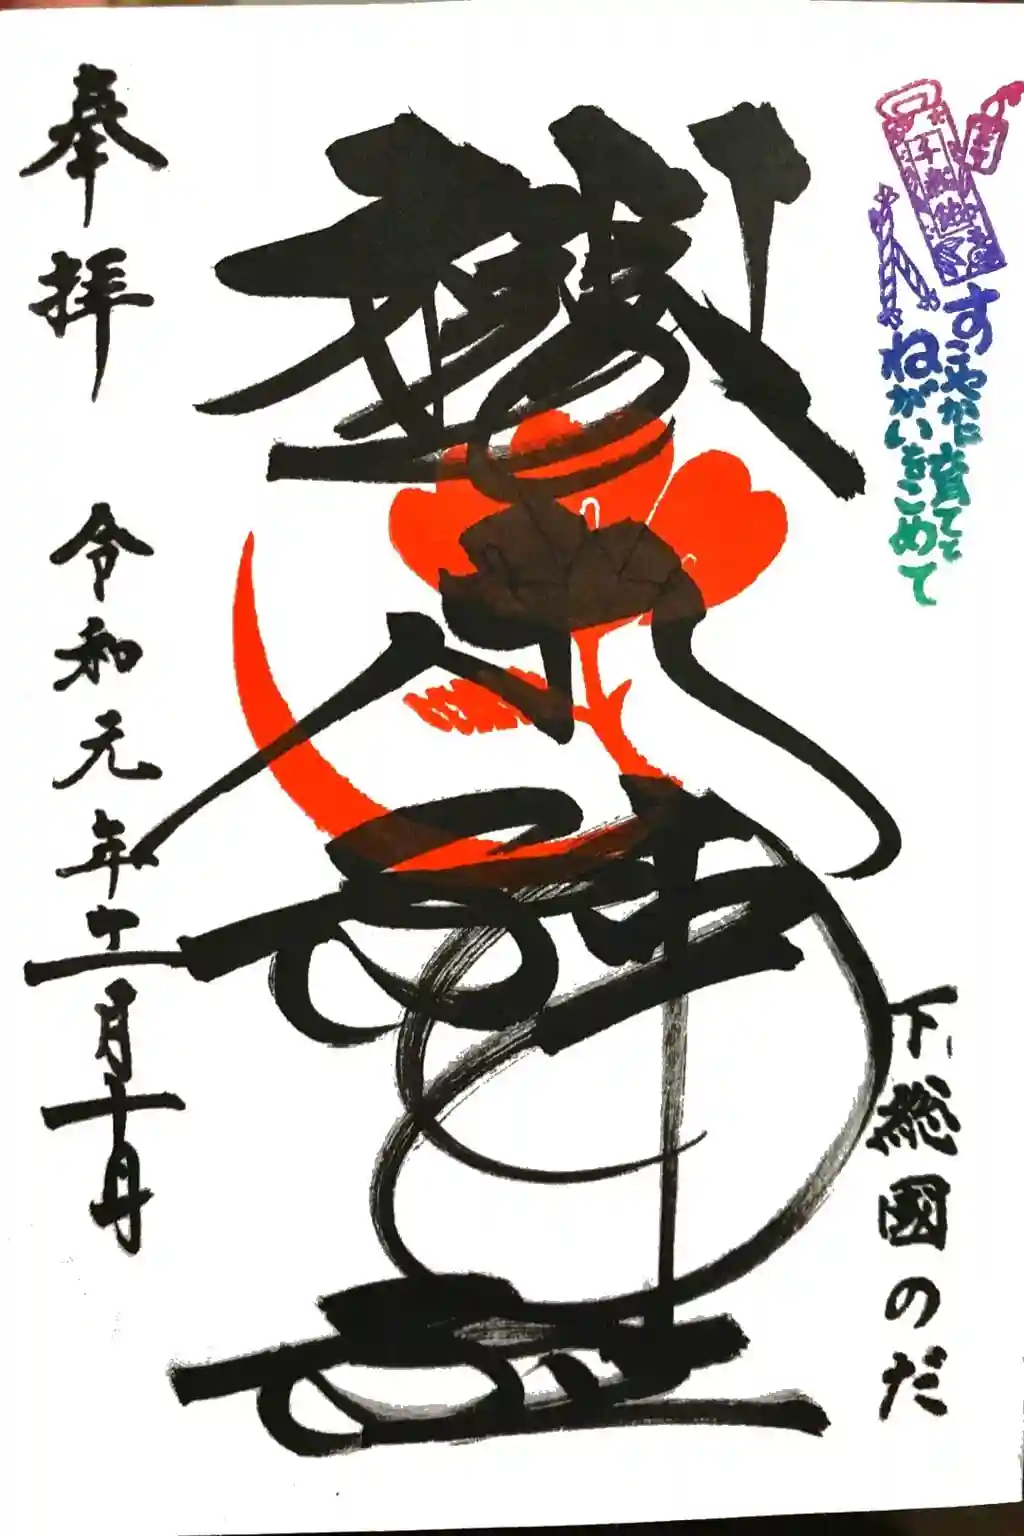 すこやかに育てと
ねがいをこめて
下総國のだ
櫻木神社
奉拝
令和元年十一月十日